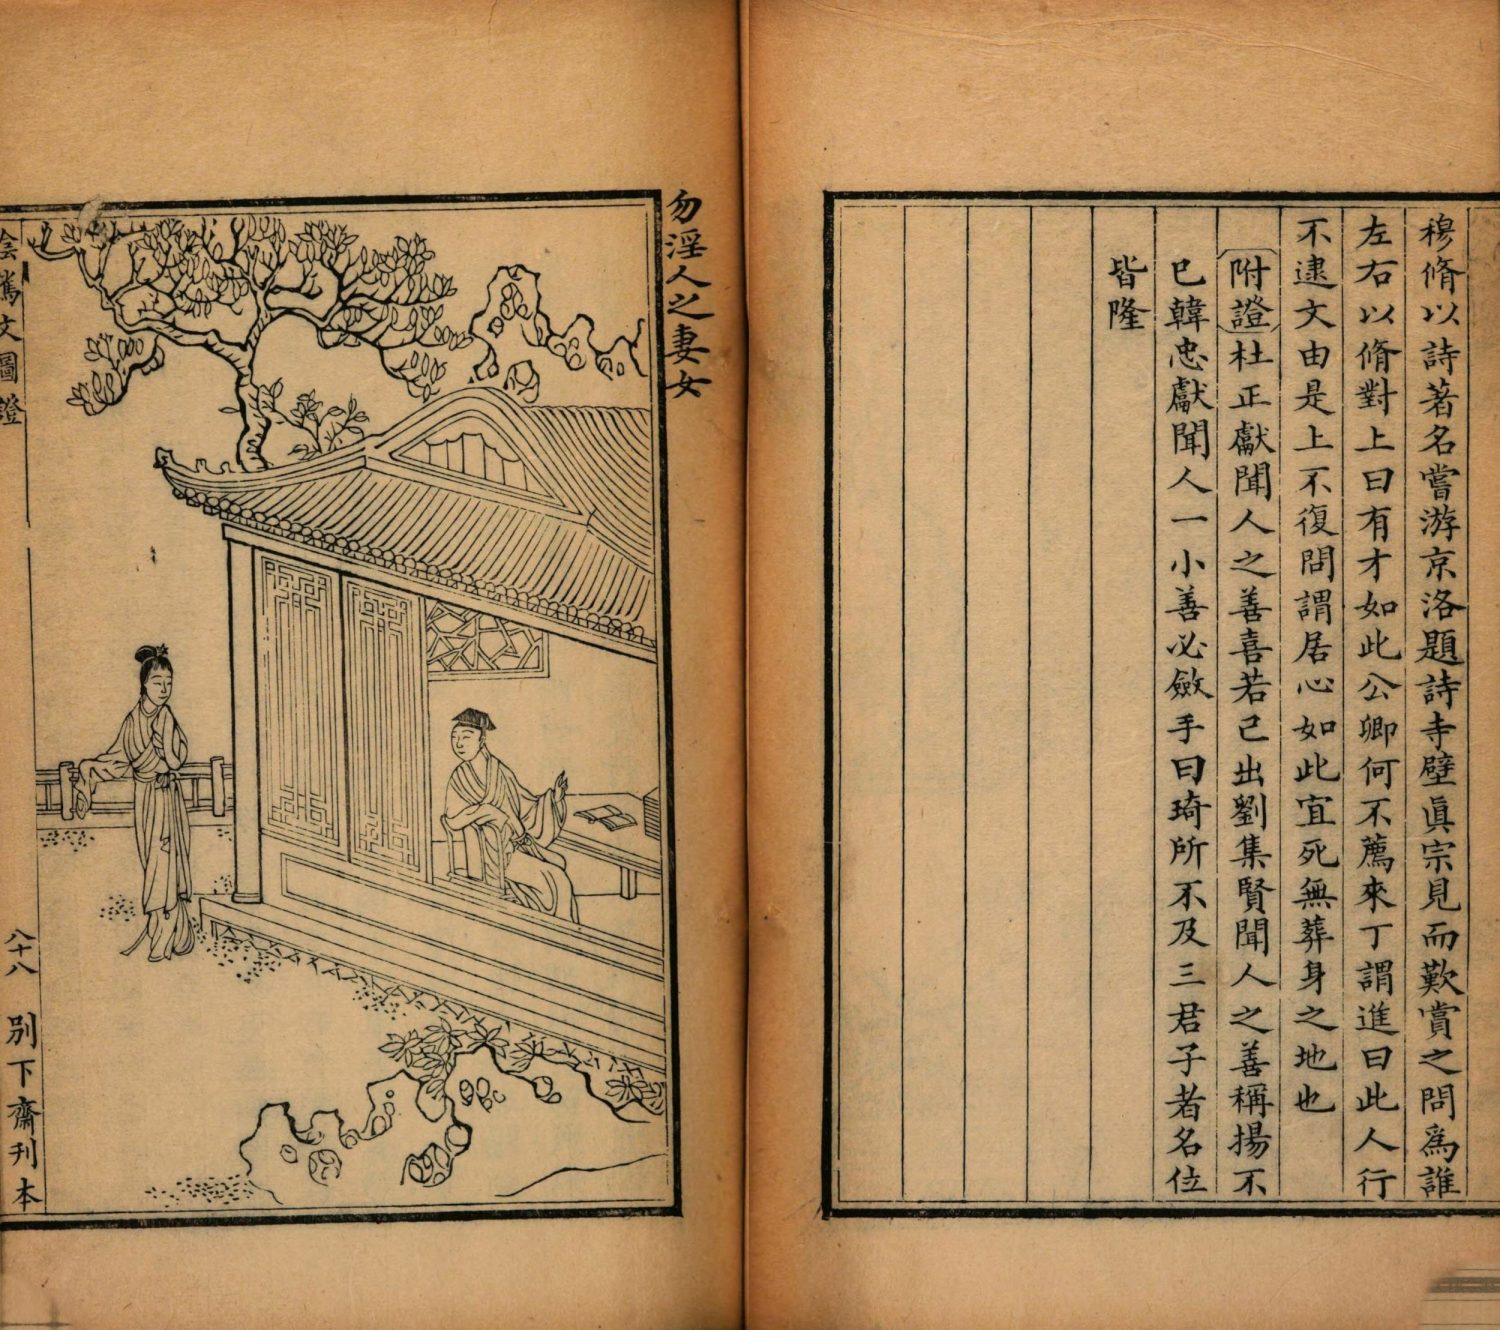 穆脩以詩著名嘗游京洛題詩寺壁眞宗見而歎賞之問爲誰
左右以脩對上曰有才如此公卿何不薦來丁謂進曰此人行
不逮文由是上不復問謂居心如此宜死無葬身之地也
附證杜正獻聞人之善喜若己出劉集賢聞人之善稱揚不
已韓忠獻聞人一小善必斂手曰琦所不及三君子者名位
皆隆
勿淫人之妻女
陰騭文圖證
八十八
別下齋刊本